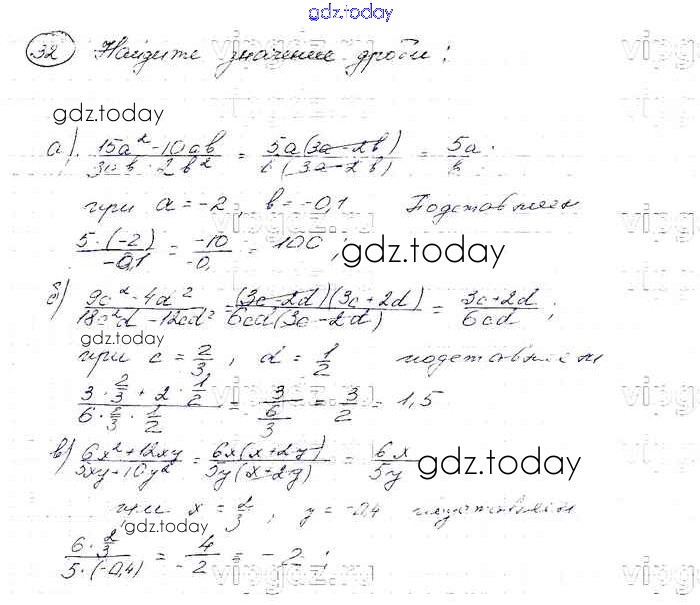 gdz.today
32 Найдите значение дроби:
gdz.today
а). (15a² - 10ab)/(3ab - 2b²) = (5a(3a - 2b))/(b(3a - 2b)) = 5a/b.
при a = -2, b = -0,1 Подставляем
(5·(-2))/(-0,1) = (-10)/(-0, ) = 100;
gdz.today
б) (9c² - 4d²)/(18c²d - 12cd²) = ((3c - 2d)(3c + 2d))/(6cd(3c - 2d)) = (3c + 2d)/(6cd);
gdz.today
при c = 2/3, d = 1/2 подставляем
(3·2/3 + 2·1/2)/(6·2/3·1/2) = 3/(6/3) = 3/2 = 1,5
в) (6x² + 12xy)/(5xy + 10y²) = (6x(x + 2y))/(5y(x + 2y)) = 6x/5y
gdz.today
при x = 2/3, y = -0,4 подставляем
gdz.today
(6·2/3)/(5·(-0,4)) = 4/-2 = -2;